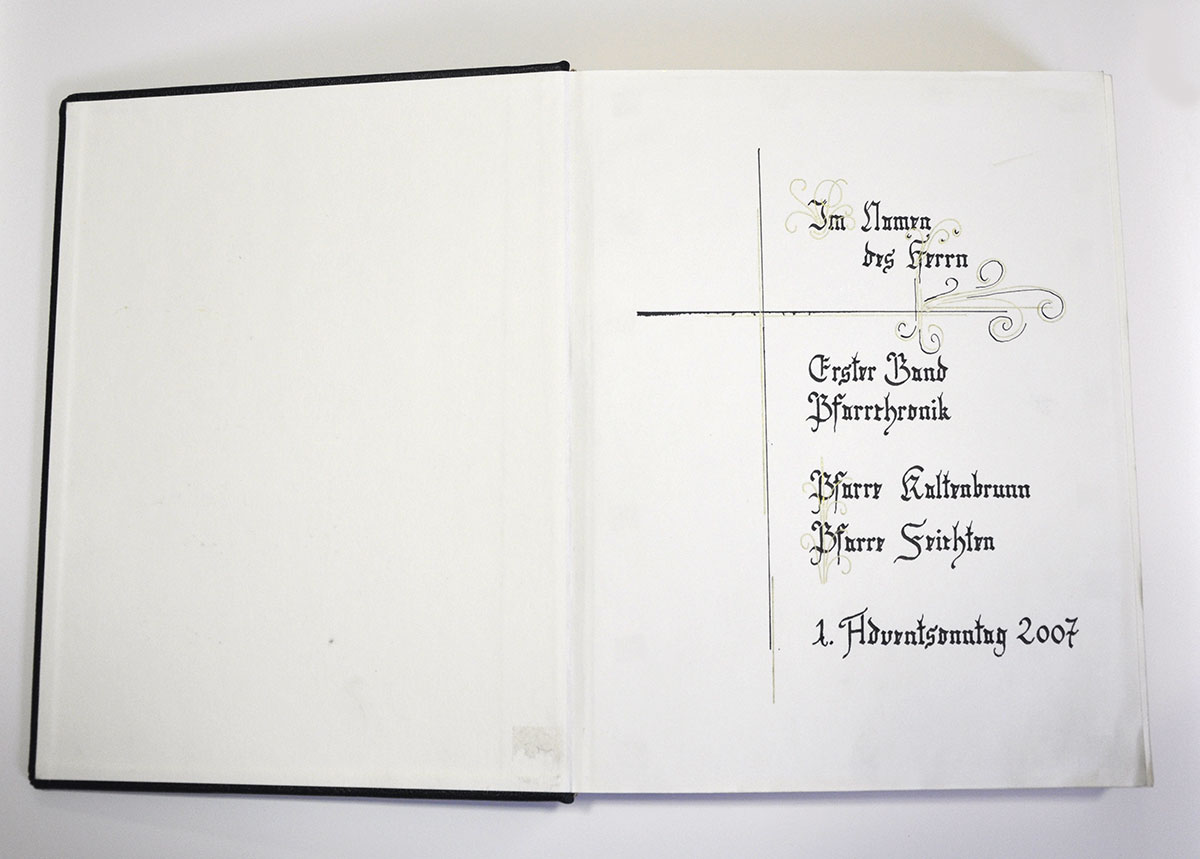 Im Namen
des Herrn
Erster Band
Pfarrchronik
Pfarre Kaltenbrunn
Pfarre Feichten
1. Adventsonntag 2007